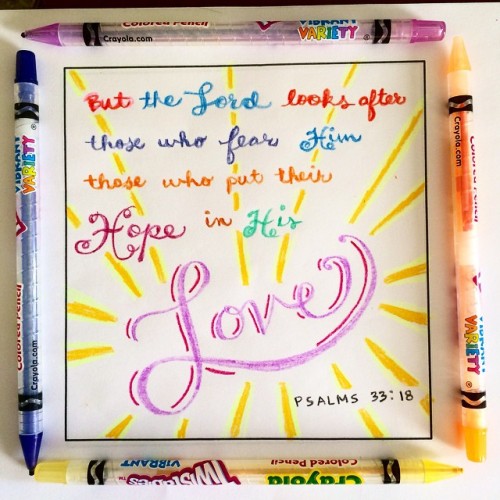 Colored Pencil
VIBRANT
VARIETY
Crayola.com
But the Lord looks after
those who fear Him
those who put their
Hope in His
Love
PSALMS 33:18
VIBRANT
VARIETY
Colored Pencil
Crayola.com
Crayola.com
Colored Pencil
VIBRANT
VARIETY
VIBRANT
Twistables™
Crayola
Colored Pencil